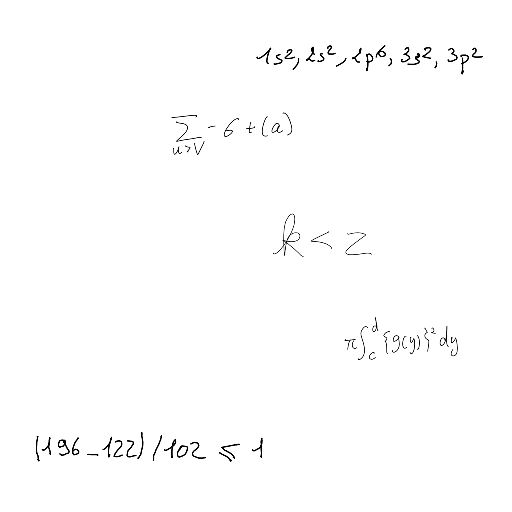 1s², 2s², 2p⁶, 3s², 3p²
∑_{u>V} - 6 + (a)
k < z
π∫_c^d {g(y)}² dy
(196 - 122) / 102 ≤ 1